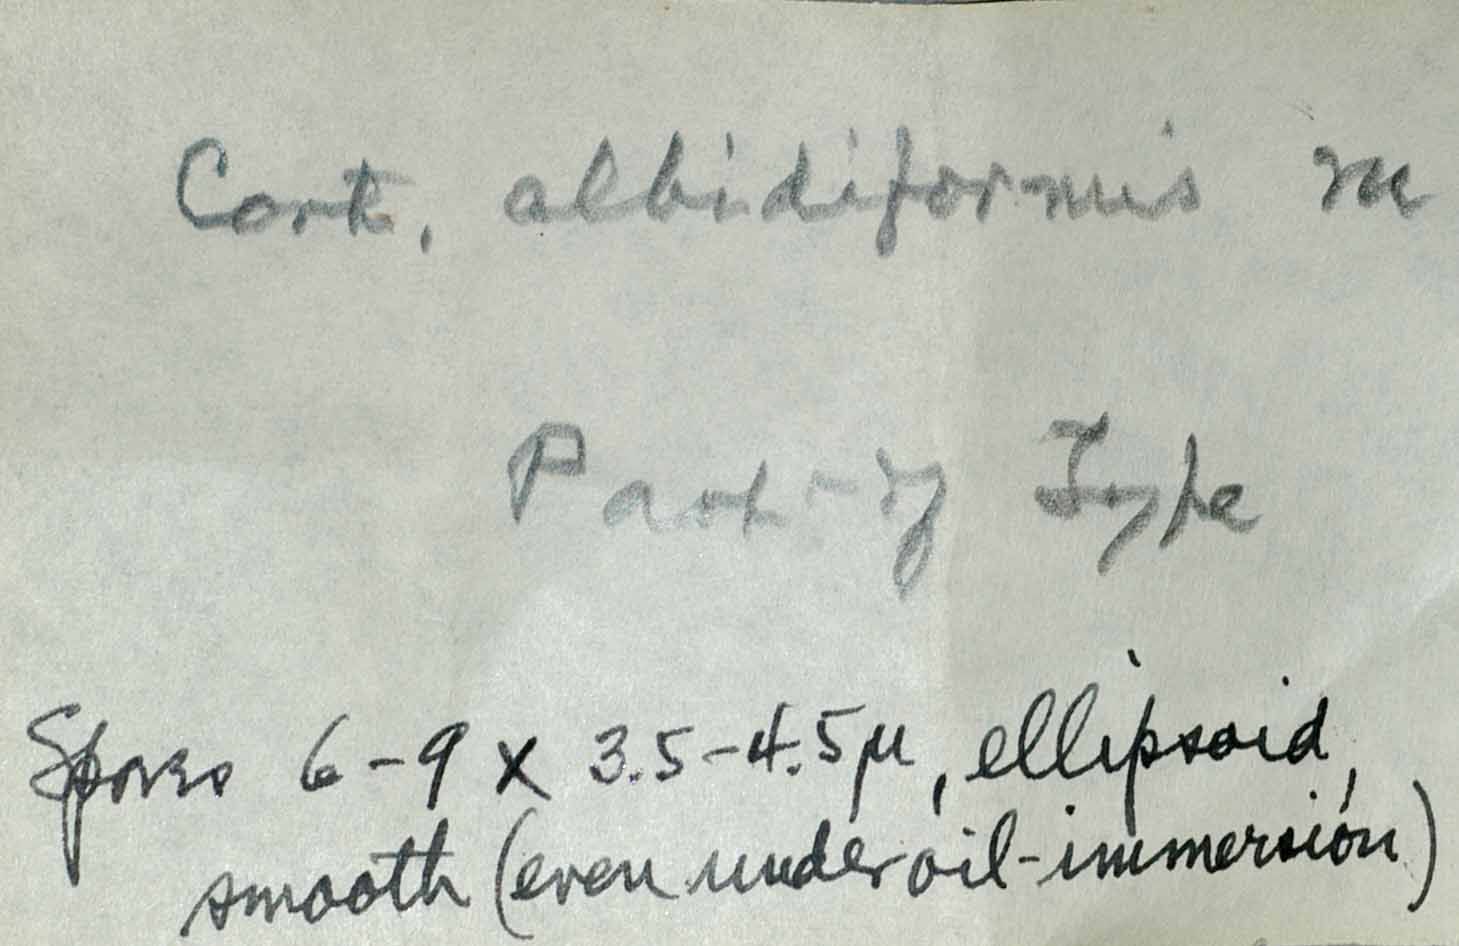 Cort. albidiformis M
Part-of Type
Spores 6-9 x 3.5-4.5µ, ellipsoid,
smooth (even under oil-immersion)